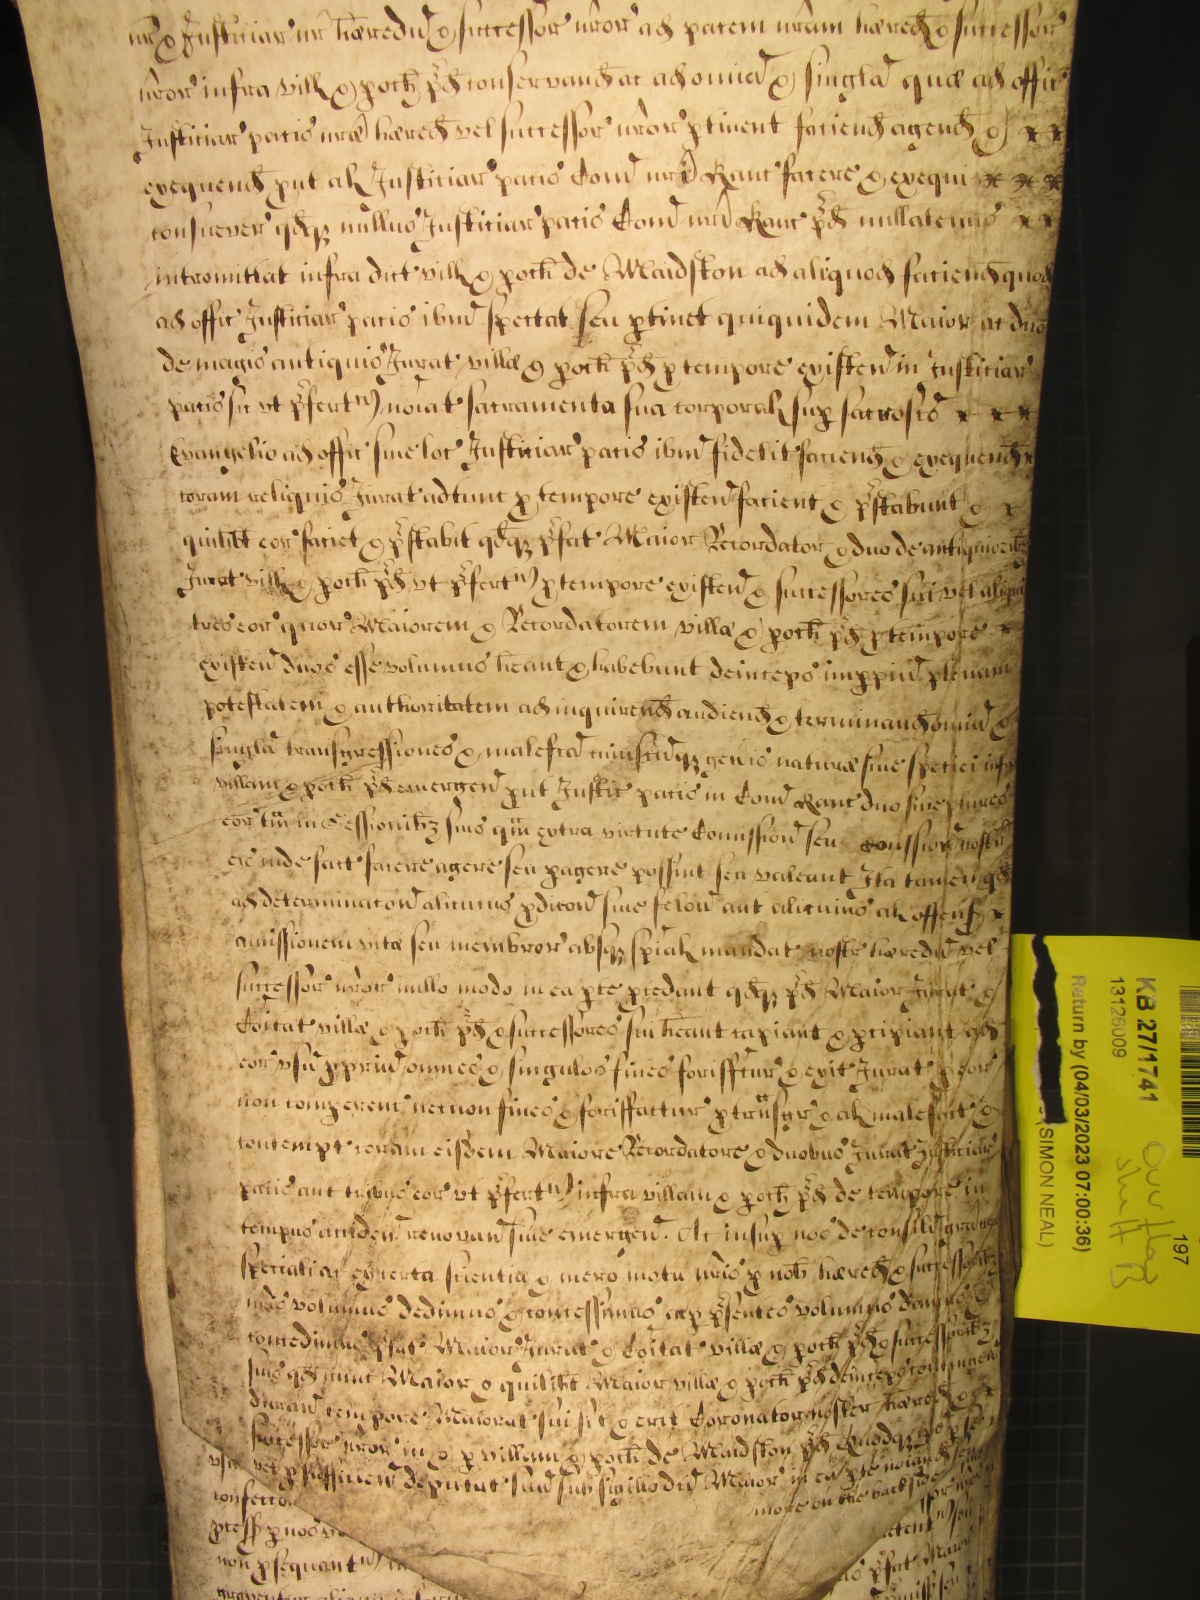 nr̄ & Justiciar' nr̄ hæredu' & successor' nr̄or' ad pacem nr̄am hæred' & successor'
nr̄or' infra vill' & poch' p̄d' conservand' ac ad omia' & singla' quæ ad offic'
Justiciar' pacis nr̄æ hæred' vel successor' nr̄or' ptinent faciend' agend' &
exequend' put al' Justiciar' pacis Com' nr̄i Kanc' facere & exequi
consuever' qdq; nullus Justiciar' pacis Com' nr̄i Kanc' p̄d' nullatenus
intromittat infra dict' vill' & poch' de Maidston ad aliquod faciend' quod
ad offic' Justiciar' pacis ibm' spectat seu ptinet quiquidem Maior ac duo
de magis antiquis Jurat' villæ & poch' p̄d' p tempore existen' in Justiciar'
pacis sic ut p̄fert' noiat' sacramenta sua corporal' sup sacrosc̄is
Evangelio ad offic' sive loc' Justiciar' pacis ibm' fidelit' faciend' & exequend'
coram reliquis Jurat' adtunc p tempore existen' facient & p̄stabunt &
quilibt' eor' faciet & p̄stabit qdq; p̄fat' Maior Recordator & duo de antiquioribz
Jurat' vill' & poch' p̄d' ut p̄fert' p tempore existen' & successores sui vel aliqui
tres eor' quor' Maiorem & Recordatorem villæ & poch' p̄d' p tempore
existen' duos esse volumus heant & habebunt deinceps imppm' plenam
potestatem & authoritatem ad inquirend' audiend' & terminand' omia' &
singla' transgressiones & malefca' cuiuscu'q; gen'is naturæ sive speciei infra
villam & poch' p̄d' emergen' put Justic' pacis in Com' Kanc' duo sive plures
eor' tm' in Sessionibz suis qm' extra virtute Comission' seu Comission' nostr'
eis inde fact' facere agere seu pagere possint seu valeant Ita tamen qd'
ad determinacon' alicuius pdicon' sive felon' aut alicuius al' offens'
amissionem vitæ seu membror' absq; spial' mandat' nostr' hæredu' vel
successor' nr̄or' nullo modo in ea pte pcedant qdq; p̄d' Maior Jurat' &
Co'itat' villæ & poch' p̄d' & successores sui heant capiant & pcipiant ad
eor' usu' ppriu' omnes & singulos fines forisfctur' & exit' Jurat' p eor'
non comparenc' necnon fines & forisfactur' p transgr' & al' malefact' &
contempt' coram eisdem Maiore Recordatore & duobus Jurat' Justiciar'
pacis aut tribus eor' ut p̄fert' infra villam & poch' p̄d' de tempore in
tempus acciden' renovan' sive emergen'. Ac insup nos de consili' gra'
speciali ac ex certa scientia & mero motu nr̄is p nob' hæred' & successoribz
nr̄is volumus dedimus & concessimus ac p p̄sentes volumus damus &
concedimus p̄fat' Maior' Jurat' & Co'itat' villæ & poch' p̄d' & successoribz
suis qd' nunc Maior & quilibt' Maior villæ & poch' p̄d' deinceps
duran' tempore Maiorat' sui sit & erit Coronator noster hæred' &
successor' nr̄or' in & p villam & poch' de Maidston p̄d' Quodq;
vel p sufficien' deputat' suu' sub sigillo dci' Maior' in ea pte noiand'
more on the back side
confeccon'
pcess' p nos
non psequant'
p̄fat' Maior
KB 27/1741
13126009
Return by (04/03/2023 07:00:36)
(SIMON NEAL)
197